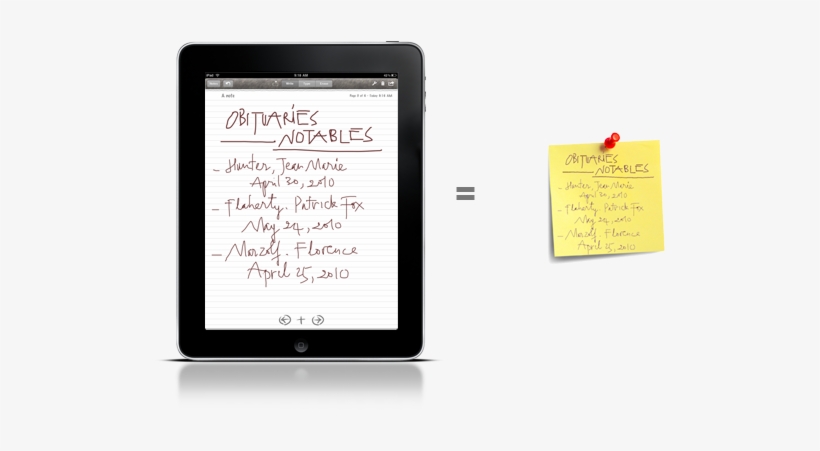 A note
OBITUARIES
NOTABLES
- Hunter, Jean Marie
April 30, 2010
- Flaherty. Patrick Fox
May 24, 2010
- Morzalf. Florence
April 25, 2010
=
OBITUARIES
NOTABLES
- Hunter, Jean Marie
April 30, 2010
- Flaherty. Patrick Fox
May 24, 2010
- Morzalf. Florence
April 25, 2010